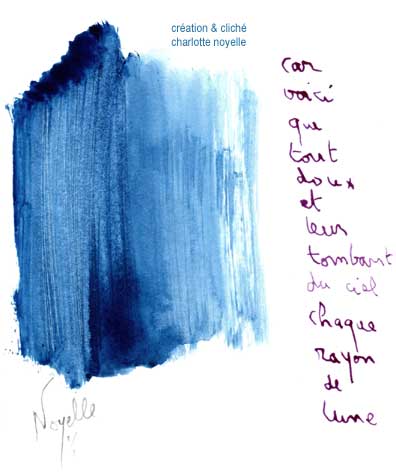 création & cliché
charlotte noyelle
car
voici
que
tout
doux
et
leur
tombant
du ciel
chaque
rayon
de
lune
Noyelle